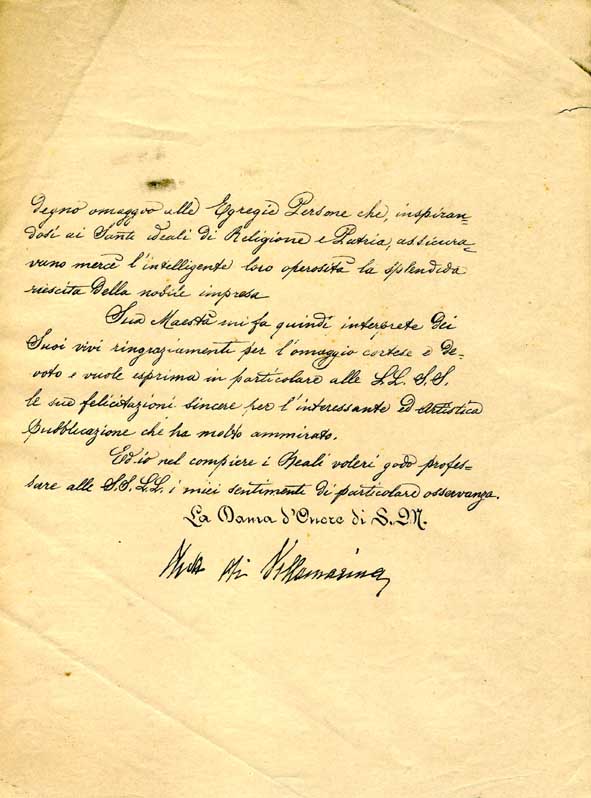 degno omaggio alle Egregie Persone che, inspiran=
dosi ai Santi ideali di Religione e Patria, assicura=
vano mercè l'intelligente loro operosità la splendida
riescita della nobile impresa
Sua Maestà mi fa quindi interprete dei
Suoi vivi ringraziamenti per l'omaggio cortese e de=
voto e vuole esprima in particolare alle LL. SS.
le sue felicitazioni sincere per l'interessante ed artistica
pubblicazione che ha molto ammirato.
Ed io nel compiere i Reali voleri godo profes=
sare alle SS. LL. i miei sentimenti di particolare osservanza.
La Dama d'Onore di S. M.
di Villamarina